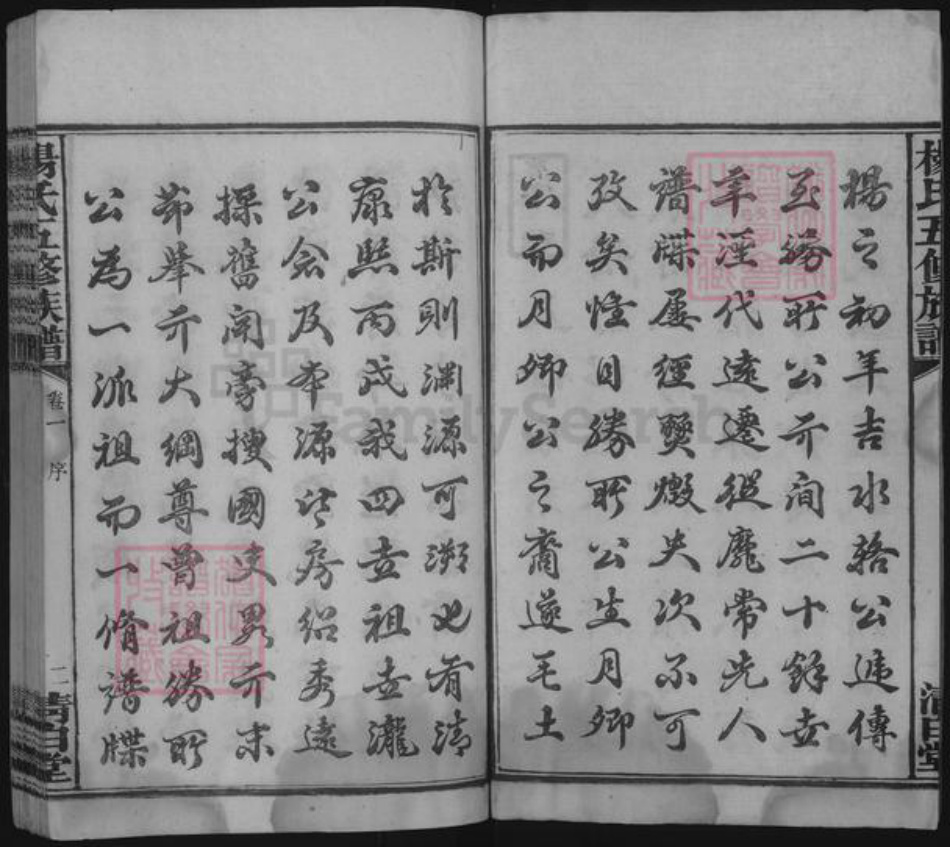 楊氏五修族譜
清白堂
楊之初年吉水輅公遞傳
至勝所公亓間二十餘世
年溼代遠遷徙靡常先人
譜牒屡經燹燬失次不可
攷矣惟目勝所公生月卿
公而月卿公之裔遂毛土
於斯則淵源可溯也前清
康熙丙戌我四世祖世瀧
公念及本源公房紹秀遠
操舊聞旁搜國史畧亓末
節舉亓大綱尊曾祖勝所
公為一派祖而一脩譜牒
楊氏五修族譜
卷一
序
二
清白堂
FamilySearch